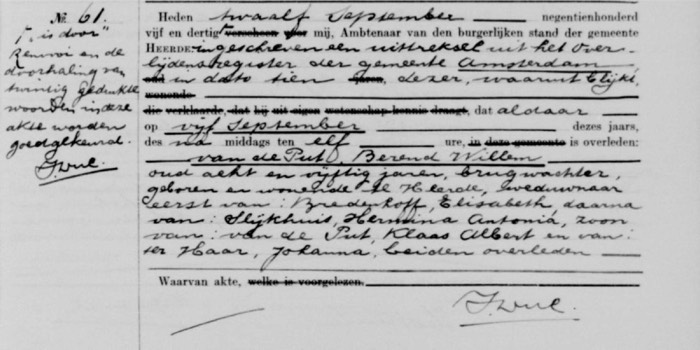 №. 61.
Γ „is door"
Renvooi en de
doorhaling van
twintig gedrukte
woorden in deze
akte worden
goedgekeurd.
Heden twaalf September negentienhonderd
vijf en dertig verscheen voor mij, Ambtenaar van den burgerlijken stand der gemeente
HEERDE: ingeschreven een uittreksel uit het Over-
lijdensregister der gemeente Amsterdam,
in dato tien dezer, waaruit blijkt
wonende
die verklaarde, dat hij uit eigen wetenschap kennis draagt, dat aldaar
op vijf September dezes jaars,
des na middags ten elf ure, in deze gemeente is overleden:
van de Put, Berend Willem
oud acht en vijftig jaren, brugwachter,
geboren en wonende te Heerde, weduwnaar
eerst van: Bredenhoff, Elisabeth daarna
van: Slijkhuis, Hermina Antonia, zoon
van: van de Put, Klaas Albert en van:
ter Haar, Johanna, beiden overleden
Waarvan akte, welke is voorgelezen.